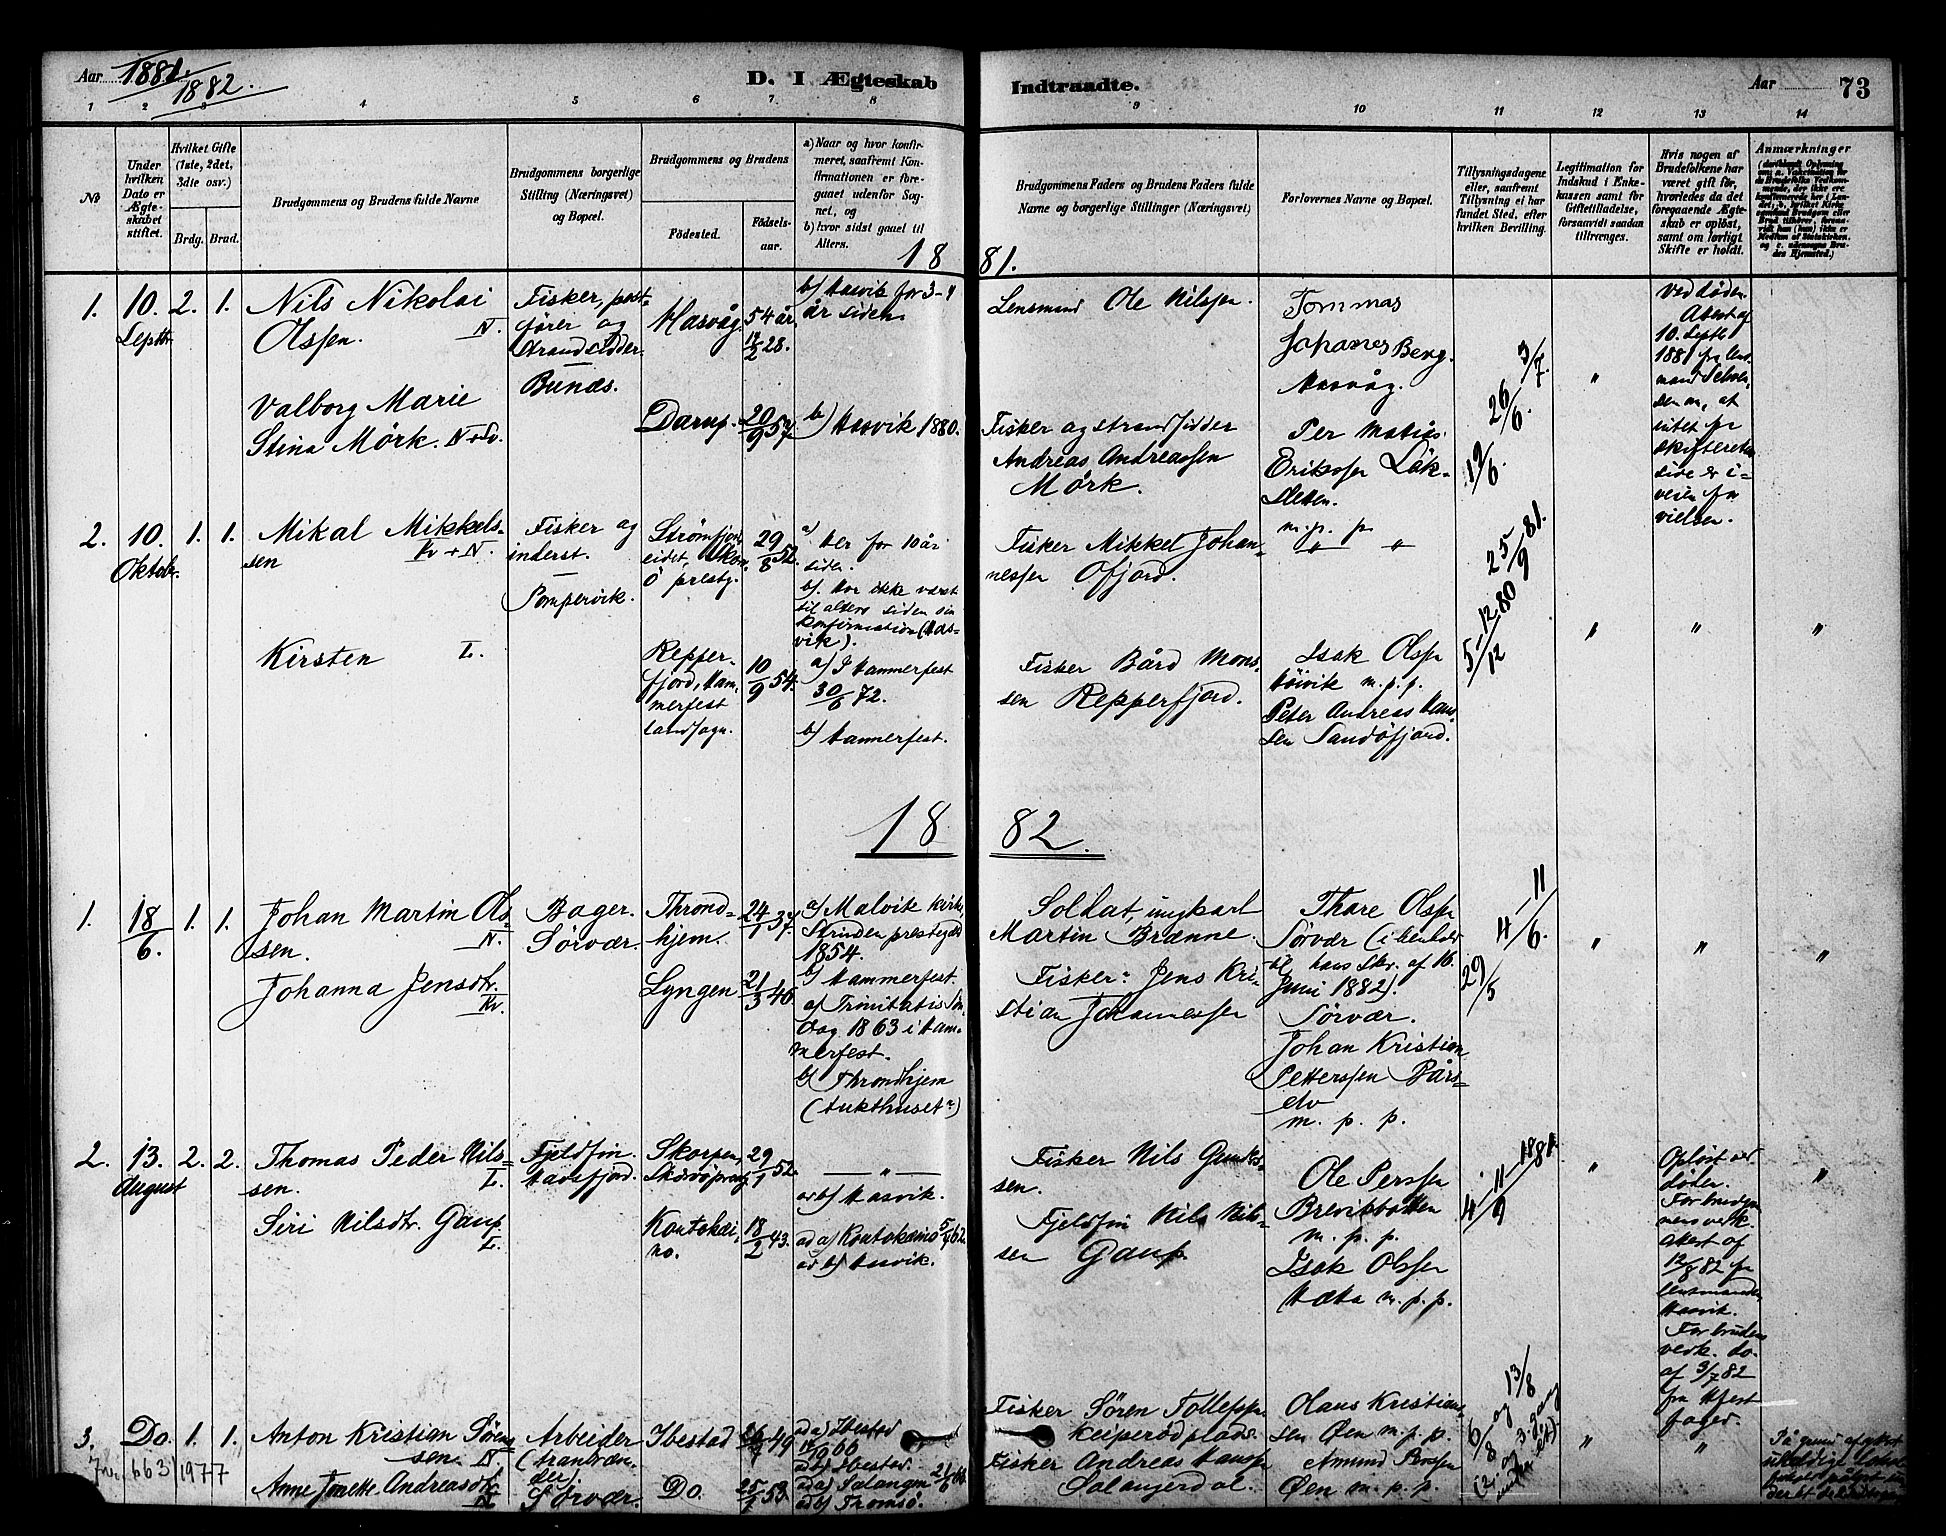 Aar 1881.
1882.
D. I Ægteskab
Indtraadte.
Aar
73
1 2 3 4 5 6 7. 8 9 10 11 12 13 14
No
Under hvilken Dato er Ægteskabet stiftet.
Hvilket Gifte (1ste, 2det, 3die osv.)
Brdg. Brud.
Brudgommens og Brudens fulde Navne
Brudgommens borgerlige Stilling (Næringsvei) og Bopæl.
Brudgommens og Brudens
Fødested.
Fødselsaar.
a) Naar og hvor konfirmeret, saafremt Konfirmationen er foregaaet udenfor Sognet, og
b) hvor sidst gaaet til Alters.
Brudgommens Faders og Brudens Faders fulde Navne og borgerlige Stillinger (Næringsvei)
Forlovernes Navne og Bopæl.
Tillysningsdagene eller, saafremt Tillysning ei har fundet Sted, efter hvilken Bevilling.
Legitimation for Indskud i Enkekassen samt for Giftetilladelse, forsaavidt saadan tiltrænges.
Hvis nogen af Brudefolkene har været gift før, hvorledes da det foregaaende Ægteskab er opløst, samt om lovligt Skifte er holdt.
Anmærkninger
18 81.
1. 10. Septbr. 2. 1.
Nils Nikolai
Olssen. N.
Fisker, postfører og
strandsidder
Bunæs.
Hasvåg. 54 år
12/2 28.
b) Hasvik for 3-4
år siden.
Lensmand Ole Nilssen.
Tommas
Johanes Berg.
Hasvåg.
26/6 3/7.
"
Ved døden.
Attest af
10. Septbr
1881 fra lensmand
Valborg Marie
Stina Mörk. N+Lv.
20/9 57.
b) Hasvik 1880.
Fisker og strandsidder
Andreas Andreassen
Mørk.
Per Matias
Erikssen Löksletten.
m. p. p.
19/6.
intet fra
skifterettens
side er iveien for
vielsen.
2. 10. Oktober. 1. 1.
Mikal Mikkelssen
Kv+N.
Fisker og
inderst.
Pompervik.
Strömfjordeidet,
prestg.
29/8 52.
a) Her for 10 år
siden.
b). Har ikke været
til alters siden sin
konfirmation (Hasvik).
Fisker Mikkel Johannessen
Ofjord.
" "
25/9 81.
Kirsten L.
Repperfjord, Hammerfest
landsogn.
10/9 54.
a) I Hammerfest
30/6 72.
b) Hammerfest.
Fisker Bård Monssen
Repperfjord.
Isak Olssen
m. p. p.
Peter Andreas Hanssen
Sandöfjord.
5-12/12 80
" " "
18 82.
1. 18/6. 1. 1.
Johan Martin Olssen.
N.
Bager.
Sörvær.
Throndhjem.
24/1 37.
a) Malvik kirke,
Strinden prestegjeld
1854.
b) Hammerfest.
Soldat, ungkarl
Martin Brænne.
Thore Olssen
Sörvær (i henhold
til hans Skr. af 16.
Juni 1882).
Sörvær.
4-11/6.
" " "
Johanna Jensdtr.
Kv.
Lyngen
21/3 46.
a) Trinitatis Söndag
1863 i Hammerfest.
b) Throndhjem
(tukthuset")
Fisker Jens Kristian
Johannessen
Johan Kristian
Petterssen Bårselv
m. p. p.
29/5
2. 13. August 2. 2.
Thomas Peder Nilssen.
L.
Fjeldfin.
Hasfjord.
Skorpen,
29/1 52.
— " —
ad b) Hasvik.
Fisker Nils
Ole Perssen
Breivikbotten
m. p. p.
4-11/9 1881.
" "
Opløst ved
døden.
For brudgommens vedk.
Attest af
12/8 82 fra
lensmanden,
Hasvik.
For brudens
vedk. do.
af 3/7 82
fra Hfest
foged.
Siri Nilsdtr. Gaup.
L.
Koutokeino.
18/2 43.
ad a) Koutokeino 62.
ad b) Hasvik.
Fjeldfin Nils Nilssen
Gaup.
Isak Olssen
Hætta m. p. p.
3. Do. 1. 1.
Anton Kristian Sörensen.
N.
Arbeider
Sörvær.
Ibestad
49
ad a) Ibestad
ad b) Ibestad.
Fisker Sören
Hans Kristianssen
Öen m. p. p.
6/8 og 13/8
" "
Anne Jonette Andreasdtr.
N
Do.
53.
ad a) Salangen
ad b) Tromsö.
Fisker Andreas Hanssen
Salangerdal.
Amund Perssen
Öen m. p. p.
663 1977